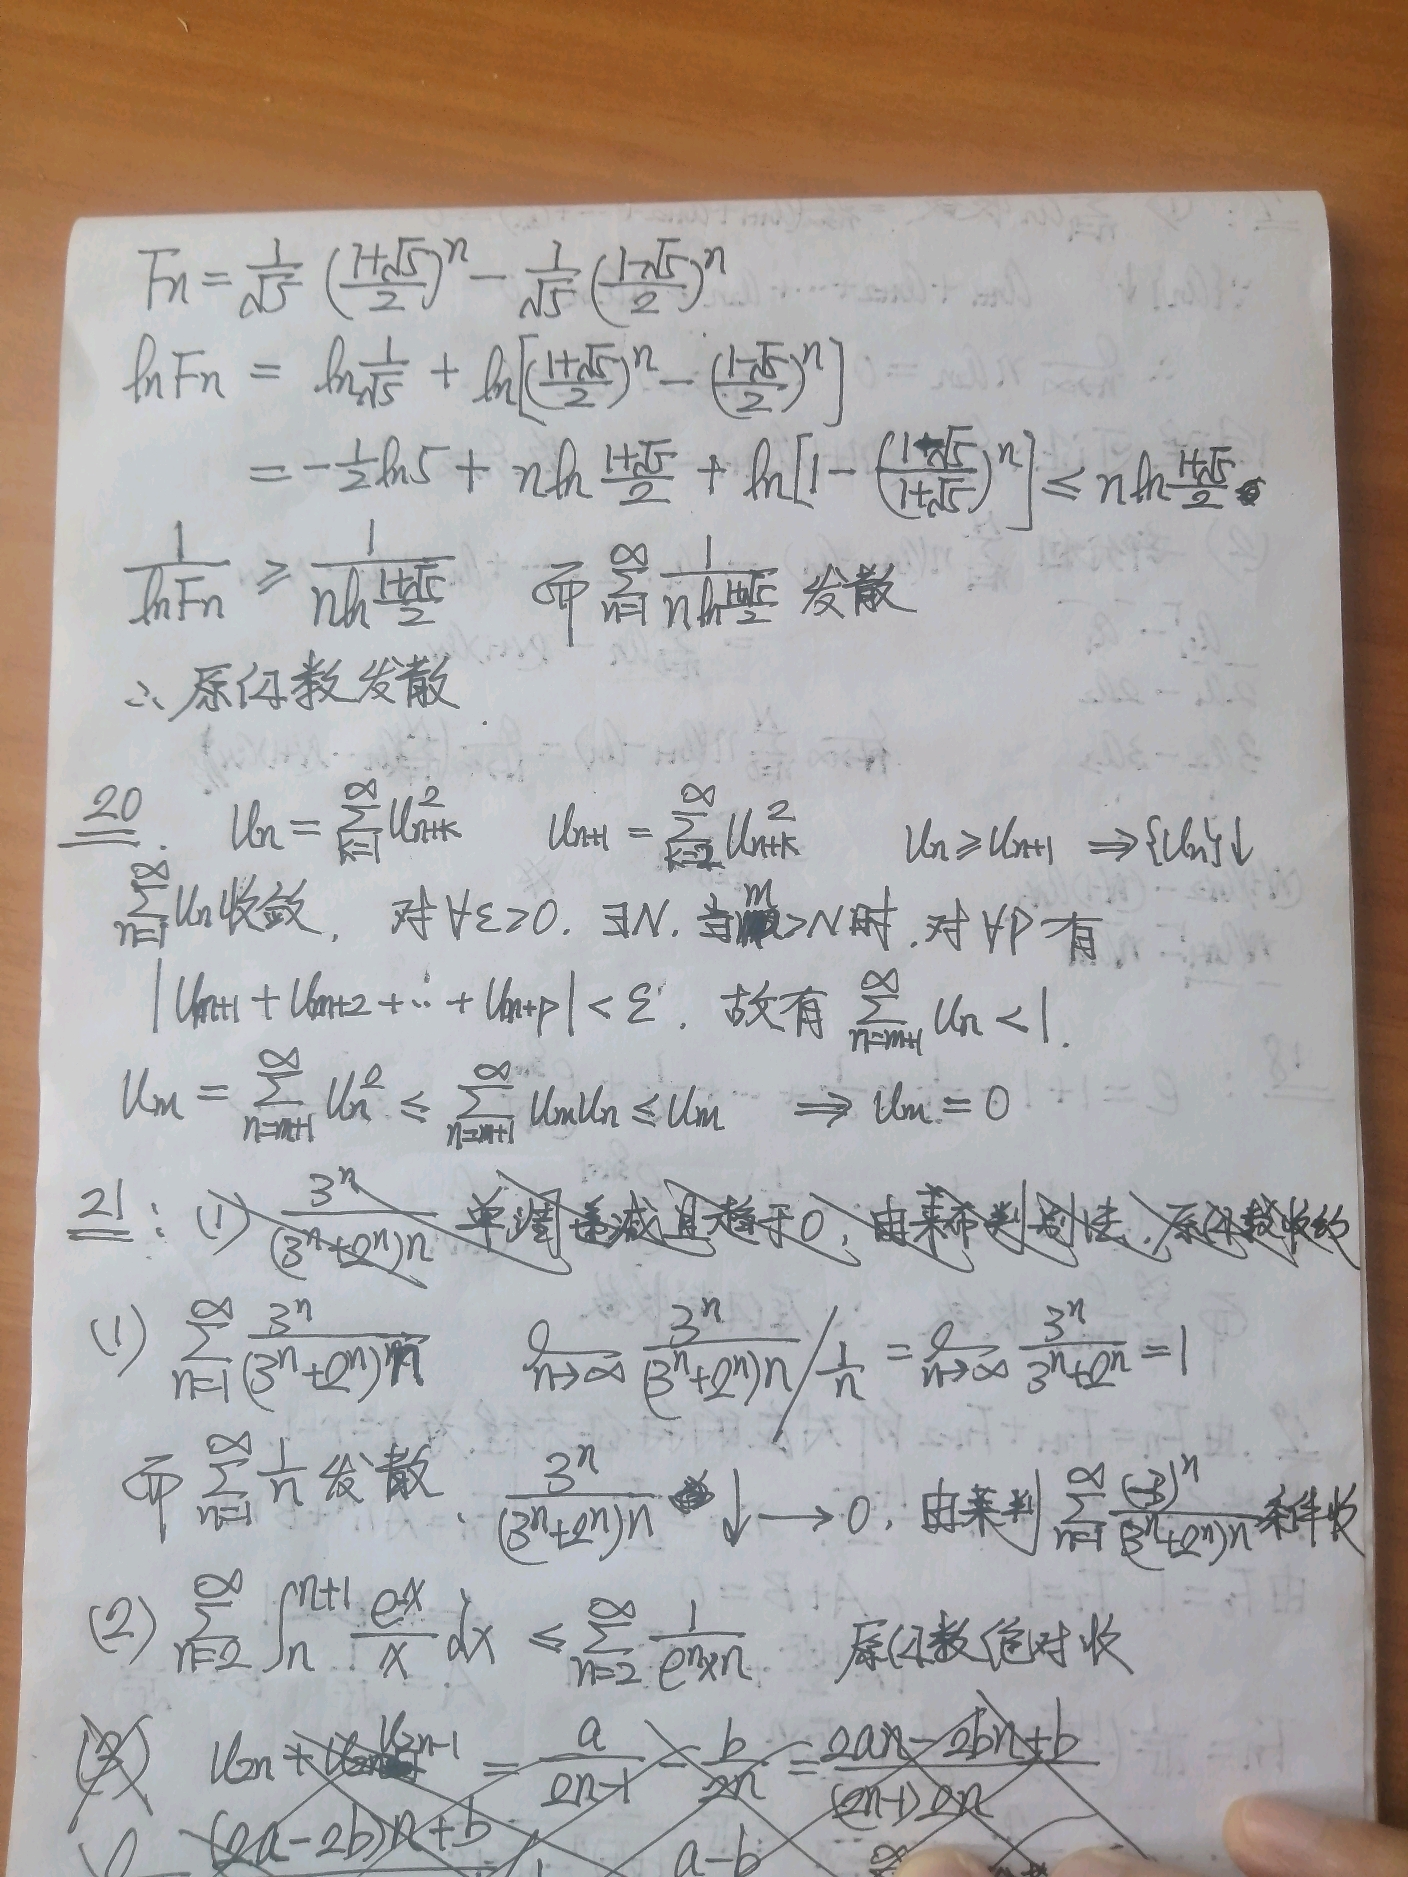 Fn = 1/√5 ((1+√5)/2)^n − 1/√5 ((1-√5)/2)^n
lnFn = ln 1/√5 + ln[((1+√5)/2)^n − ((1-√5)/2)^n]
= −1/2 ln5 + n ln (1+√5)/2 + ln[1 − ((1-√5)/(1+√5))^n] ≤ n ln (1+√5)/2
1/lnFn ≥ 1/(n ln (1+√5)/2) 而 ∑_{n=1}^∞ 1/(n ln (1+√5)/2) 发散
∴ 原级数发散.
20. Un = ∑_{k=1}^∞ U_{n+k}^2 U_{n+1} = ∑_{k=2}^∞ U_{n+k}^2 Un ≥ U_{n+1} ⇒ {Un}↓
∑_{n=1}^∞ Un 收敛, 对∀ε>0. ∃N. 当m>N时, 对∀P有
|U_{m+1} + U_{m+2} + … + U_{m+p}| < ε. 故有 ∑_{n=m+1}^∞ Un < 1.
Um = ∑_{n=m+1}^∞ Un^2 ≤ ∑_{n=m+1}^∞ UmUn ≤ Um ⇒ Um = 0
21: (1) 3^n/((3^n+2^n)n) 单调递减且趋于0, 由莱布判别法, 原级数收敛
(1) ∑_{n=1}^∞ 3^n/((3^n+2^n)n) lim_{n→∞} 3^n/((3^n+2^n)n) / 1/n = lim_{n→∞} 3^n/(3^n+2^n) = 1
而 ∑_{n=1}^∞ 1/n 发散. 3^n/((3^n+2^n)n) ↓→0, 由莱判 ∑_{n=1}^∞ (-3)^n/((3^n+2^n)n) 条件收
(2) ∑_{n=2}^∞ ∫_n^{n+1} e^{-x}/x dx ≤ ∑_{n=2}^∞ 1/(e^n×n) 原级数绝对收
(3) U_{2n} + U_{2n-1} = a/(2n-1) − b/2n = (2an−2bn+b)/((2n-1)2n)
(2a−2b)n+b a−b